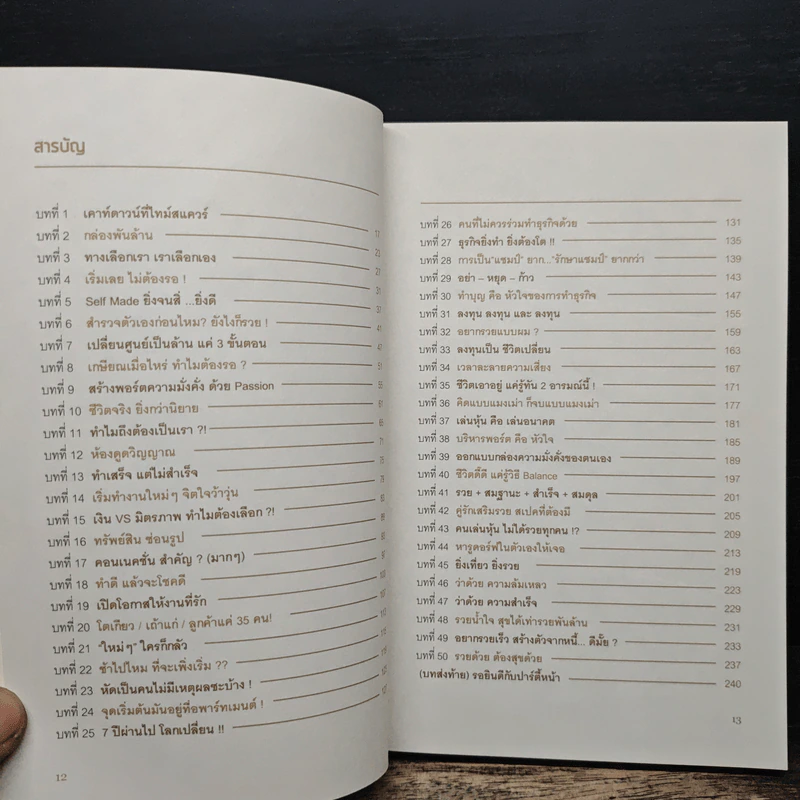 สารบัญ
บทที่ 1 เคาท์ดาวน์ที่ไทม์สแควร์ 17
บทที่ 2 กล่องพันล้าน 23
บทที่ 3 ทางเลือกเรา เราเลือกเอง 27
บทที่ 4 เริ่มเลย ไม่ต้องรอ ! 31
บทที่ 5 Self Made ยิ่งจนสิ่ ...ยิ่งดี 37
บทที่ 6 สำรวจตัวเองก่อนไหม? ยังไงก็รวย ! 41
บทที่ 7 เปลี่ยนศูนย์เป็นล้าน แค่ 3 ขั้นตอน 47
บทที่ 8 เกษียณเมื่อไหร่ ทำไมต้องรอ ? 51
บทที่ 9 สร้างพอร์ตความมั่งคั่ง ด้วย Passion
บทที่ 10 ชีวิตจริง ยิ่งกว่านิยาย 61
บทที่ 11 ทำไมถึงต้องเป็นเรา ?!
บทที่ 12 ห้องดูดวิญญาณ 71
บทที่ 13 ทำเสร็จ แต่ไม่สำเร็จ
บทที่ 14 เริ่มทำงานใหม่ๆ จิตใจว้าวุ่น 79
บทที่ 15 เงิน VS มิตรภาพ ทำไมต้องเลือก ?!
บทที่ 16 ทรัพย์สิน ซ่อนรูป
บทที่ 17 คอนเนคชั่น สำคัญ ? (มากๆ)
บทที่ 18 ทำดี แล้วจะโชคดี
บทที่ 19 เปิดโอกาสให้งานที่รัก
บทที่ 20 โตเกียว / เถ้าแก่ / ลูกค้าแค่ 35 คน!
บทที่ 21 "ใหม่ๆ" ใครก็กลัว
บทที่ 22 ช้าไปไหม ที่จะเพิ่งเริ่ม ??
บทที่ 23 หัดเป็นคนไม่มีเหตุผลซะบ้าง !
บทที่ 24 จุดเริ่มต้นมันอยู่ที่อพาร์ทเมนต์ !
บทที่ 25 7 ปีผ่านไป โลกเปลี่ยน !!
12
บทที่ 26 คนที่ไม่ควรร่วมทำธุรกิจด้วย 131
บทที่ 27 ธุรกิจยิ่งทำ ยิ่งต้องโต !! 135
บทที่ 28 การเป็น"แชมป์" ยาก..."รักษาแชมป์" ยากกว่า 139
บทที่ 29 อย่า – หยุด – ก้าว 143
บทที่ 30 ทำบุญ คือ หัวใจของการทำธุรกิจ 147
บทที่ 31 ลงทุน ลงทุน และ ลงทุน 155
บทที่ 32 อยากรวยแบบผม ? 159
บทที่ 33 ลงทุนเป็น ชีวิตเปลี่ยน 163
บทที่ 34 เวลาละลายความเสี่ยง 167
บทที่ 35 ชีวิตเอาอยู่ แค่รู้ทัน 2 อารมณ์นี้ ! 171
บทที่ 36 คิดแบบแมงเม่า ก็จบแบบแมงเม่า 177
บทที่ 37 เล่นหุ้น คือ เล่นอนาคต 181
บทที่ 38 บริหารพอร์ต คือ หัวใจ 185
บทที่ 39 ออกแบบกล่องความมั่งคั่งของตนเอง 189
บทที่ 40 ชีวิตดี๊ดี แค่รู้วิธี Balance 197
บทที่ 41 รวย + สมฐานะ + สำเร็จ + สมดุล 201
บทที่ 42 คู่รักเสริมรวย สเปคที่ต้องมี 205
บทที่ 43 คนเล่นหุ้น ไม่ได้รวยทุกคน !? 209
บทที่ 44 หารูดอร์ฟในตัวเองให้เจอ 213
บทที่ 45 ยิ่งเที่ยว ยิ่งรวย 219
บทที่ 46 ว่าด้วย ความล้มเหลว 223
บทที่ 47 ว่าด้วย ความสำเร็จ 229
บทที่ 48 รวยน้ำใจ สุขได้เท่ารวยพันล้าน 231
บทที่ 49 อยากรวยเร็ว สร้างตัวจากหนี้... ดีมั้ย ? 233
บทที่ 50 รวยด้วย ต้องสุขด้วย 237
(บทส่งท้าย) รอยินดีกับปาร์ตี้หน้า 240
13